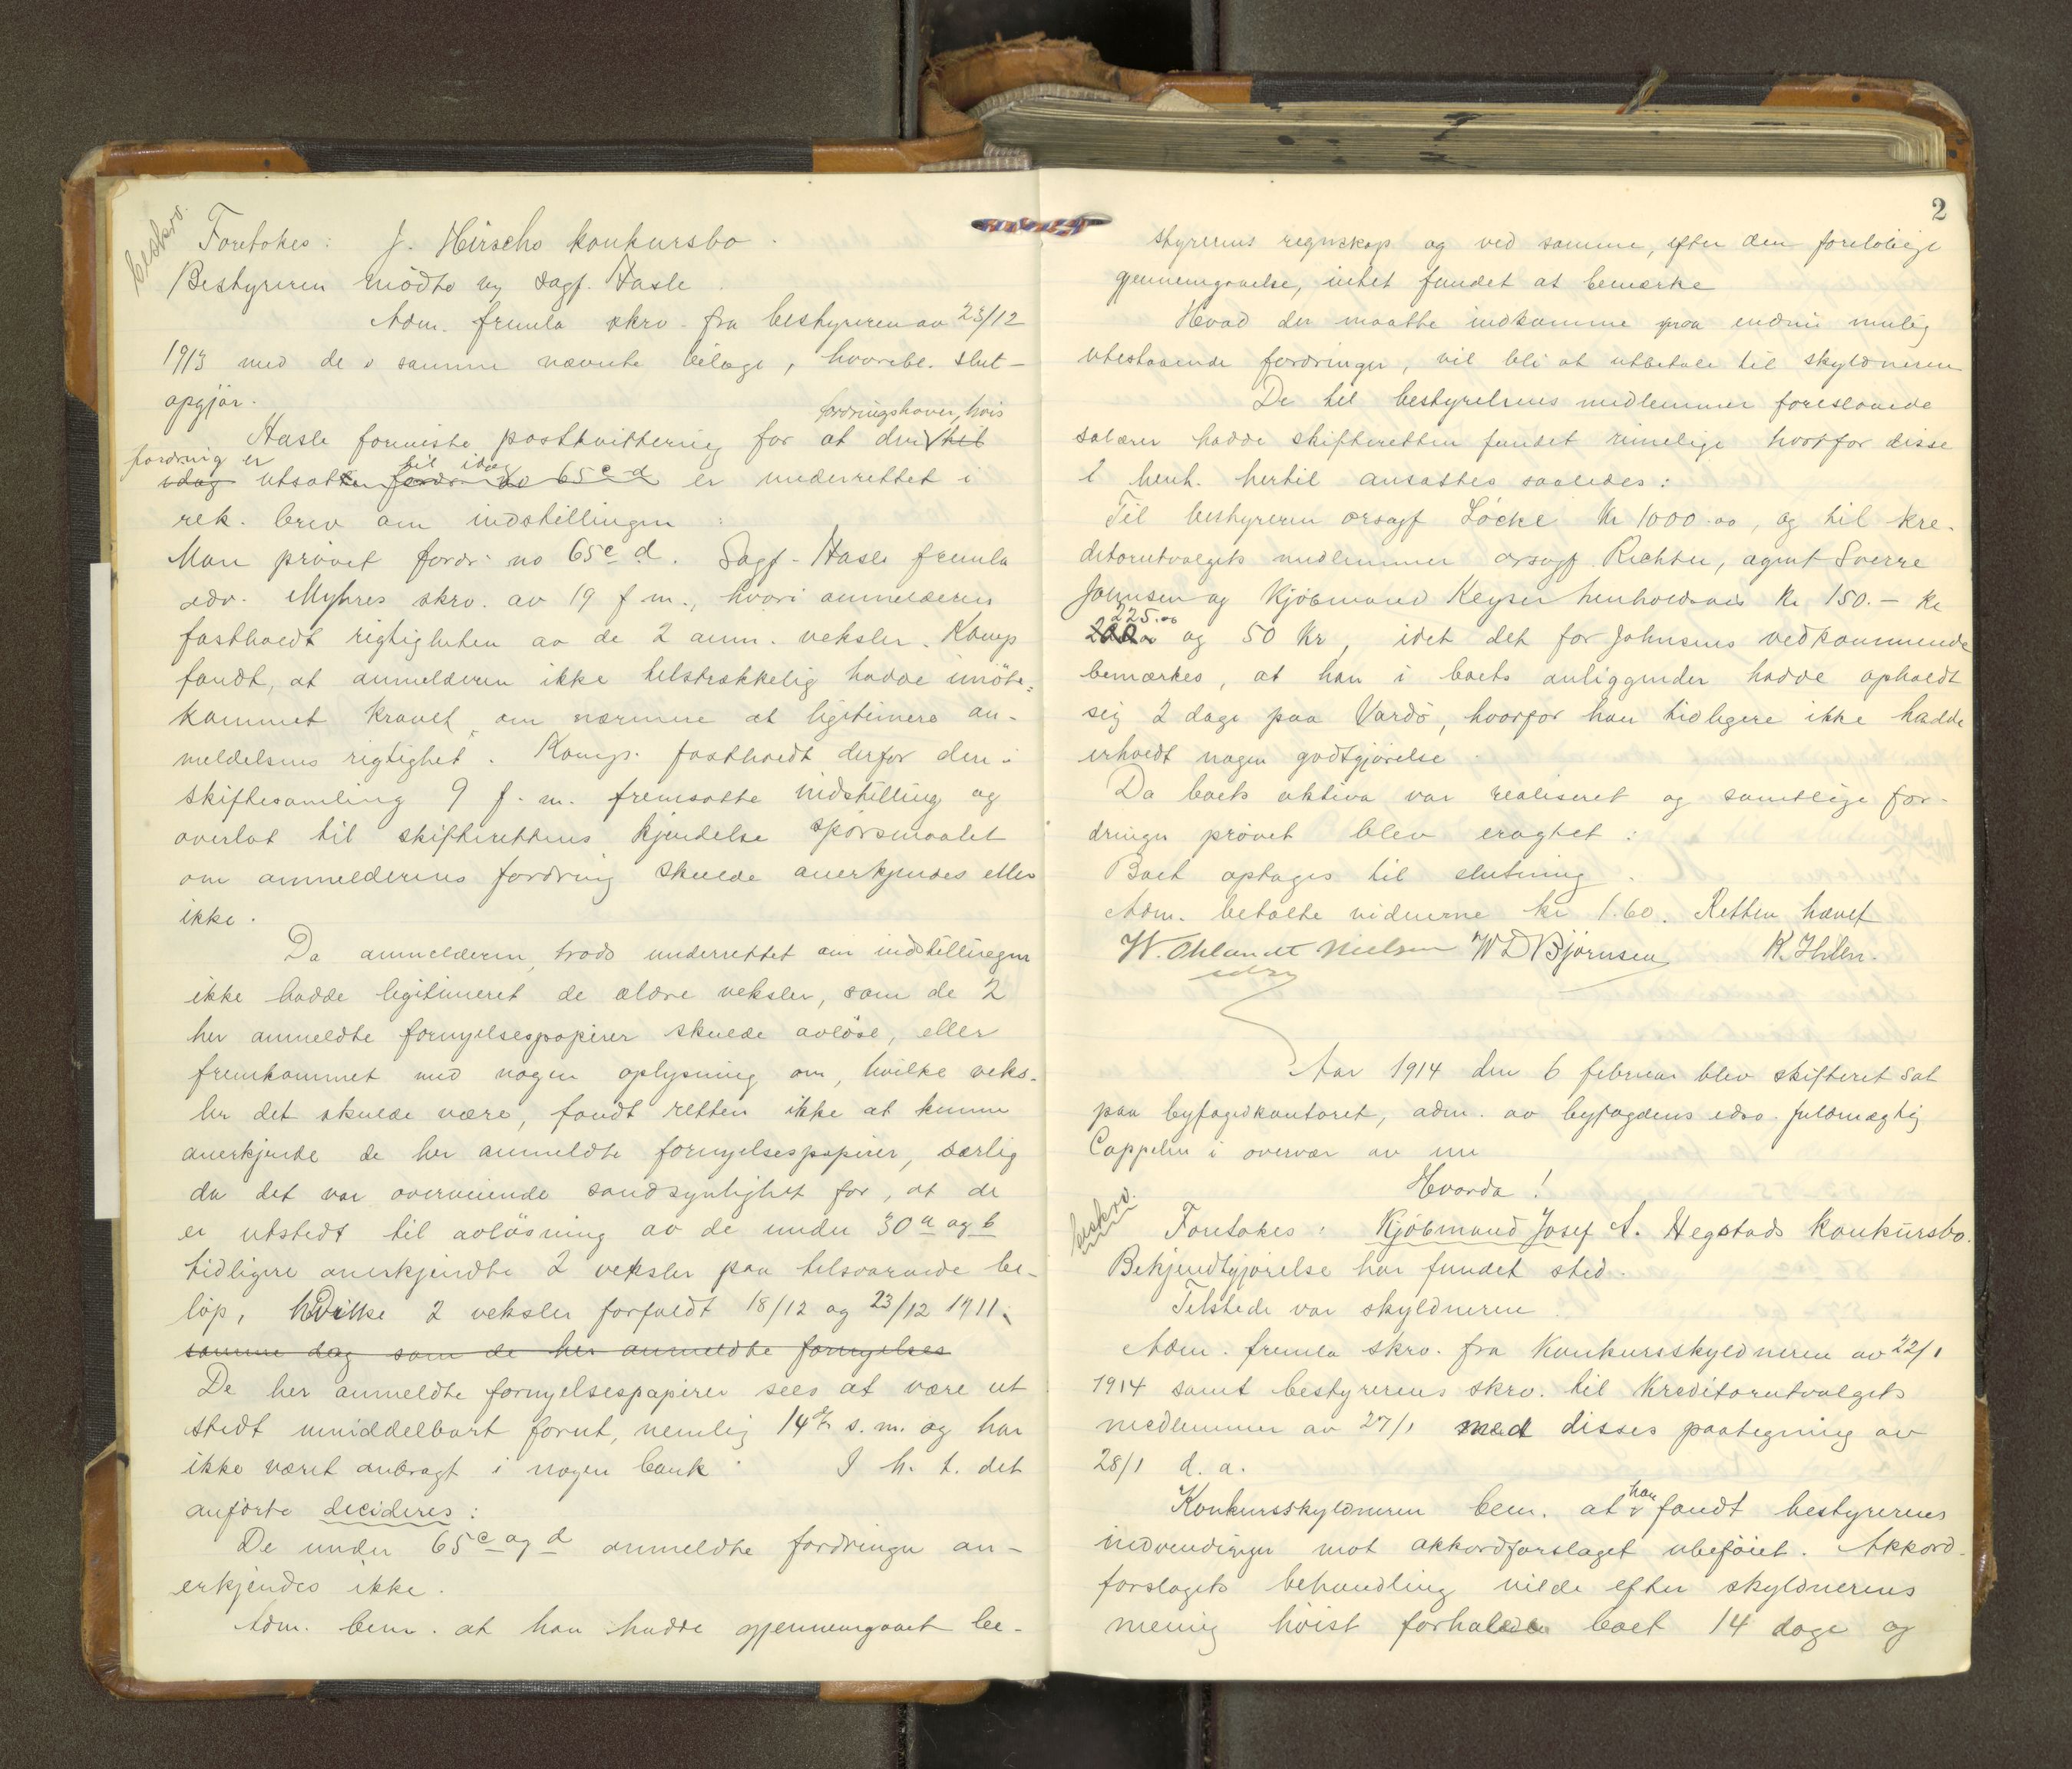 beskrv.
Foretokes: J. Hirschs konkursbo.
Bestyreren mödte ny sagf. Hasle.
Adm. fremla skrv. fra bestyreren av 23/12
1913 med de i samme nævnte bilage, hvoribl. slut-
opgjör.
fordringshaver, hvis
Hasle foreviste postkvittering for at den til
fordring er til idag
idag utsatte fordr. no 65 c d er underrettet i
rek. brev om indstillingen
Man prövet fordr. no 65 c d. Sagf. Hasle fremla
adv. Myhres skrv. av 19 f. m., hvori anmelderen
fastholdt rigtigheten av de 2 anm. veksler. Komp.
fandt, at anmelderen ikke tilstrækkelig hadde imöte-
kommet kravet om nærmere at legitimere an-
meldelsens rigtighet. Komp. fastholdt derfor den i
skiftesamling 9 f. m. fremsatte indstilling og
overlot til skifterettens kjendelse spörsmaalet
om anmelderens fordring skulde anerkjendes eller
ikke.
Da anmelderen, trods underrettet om indstillingen
ikke hadde legitimeret de ældre veksler, som de 2
her anmeldte fornyelsespapirer skulde avlöse, eller
fremkommet med nogen oplysning om, hvilke veks-
ler det skulde være, fandt retten ikke at kunne
anerkjende de her anmeldte fornyelsespapirer, særlig
da det var overveiende sandsynlighet for, at de
er utstedt til avlösning av de under 30 a og b
tidligere anerkjendte 2 veksler paa tilsvarende be-
löp, hvilke 2 veksler forfaldt 18/12 og 23/12 1911.
samme dag som de her anmeldte fornyelses
De her anmeldte fornyelsespapirer sees at være ut
stedt umiddelbart forut, nemlig 14de s. m. og har
ikke været anbragt i nogen bank. I h. t. det
anförte decideres:
De under 65 c og d anmeldte fordringer an-
erkjendes ikke.
Adm. bem. at han hadde gjennemgaaet be-
2
styrerens regnskap og ved samme, efter den foreløbige
gjennemgaaelse, intet fundet at bemerke
Hvad der maatte indkomme paa endnu mulig
utestaaende fordringer, vil bli at utbetale til skyldneren
De til bestyrelsens medlemmer foreslaaede
salærer hadde skifteretten fundet rimelige hvorfor disse
i henh. hertil ansattes saaledes:
Til bestyreren orsagf Löcke Kr 1000.00, og til kre-
ditorutvalgets medlemmer orsagf. Richter, agent Sverre
Johnsen og Kjöbmand Keyser henholdsvis Kr 150.- Kr
225.00
200.00 og 50 Kr, idet det for Johnsens vedkommende
bemærkes, at han i boets anliggender hadde opholdt
sig 2 dage paa Vardö, hvorfor han tidligere ikke hadde
erholdt nogen godtgjörelse.
Da boets aktiva var realiseret og samtlige for-
dringer prövet blev eragtet:
Boet optages til slutning.
Adm. betalte vidnerne kr 1.60. Retten hævet
W. Ohlandt Nielsen W D Björnsen K. Hilen.
edsv
Aar 1914 den 6 februar blev skifteret sat
paa byfogdkontoret, adm. av byfogdens edsv. fuldmægtig
Cappelen i overvær av un
Hvorda!
beskrv.
Foretokes: Kjöbmand Josef A. Hegstads konkursbo.
Bekjendtgjörelse har fundet sted.
Tilstede var skyldneren.
Adm. fremla skrv. fra Konkursskyldneren av 22/1
1914 samt bestyrerens skrv. til Kreditorutvalgets
medlemmer av 27/1 med disses paategning av
28/1 d. a.
han
Konkursskyldneren bem. at fandt bestyrerens
indvendinger mot akkordforslaget ubeföiet. Akkord-
forslagets behandling vilde efter skyldnerens
mening höist forhale boet 14 dage og